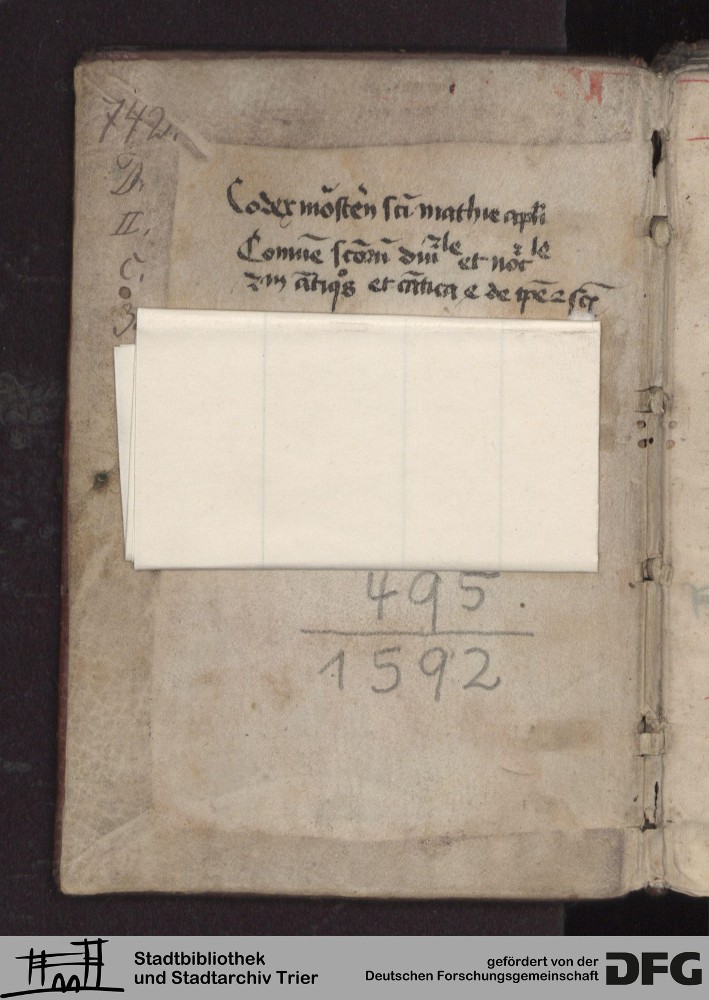 742.
D.
II.
C.
3
Codex mōstēn sci mathie apli
Comūe scōrū diū et noc
antiqs et cātica e de tpe
495.
1592
Stadtbibliothek
und Stadtarchiv Trier
gefördert von der
Deutschen Forschungsgemeinschaft
DFG